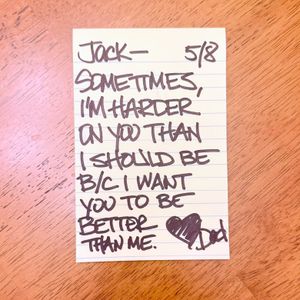 JACK— 5/8
SOMETIMES,
I'M HARDER
ON YOU THAN
I SHOULD BE
B/C I WANT
YOU TO BE
BETTER
THAN ME. Dad